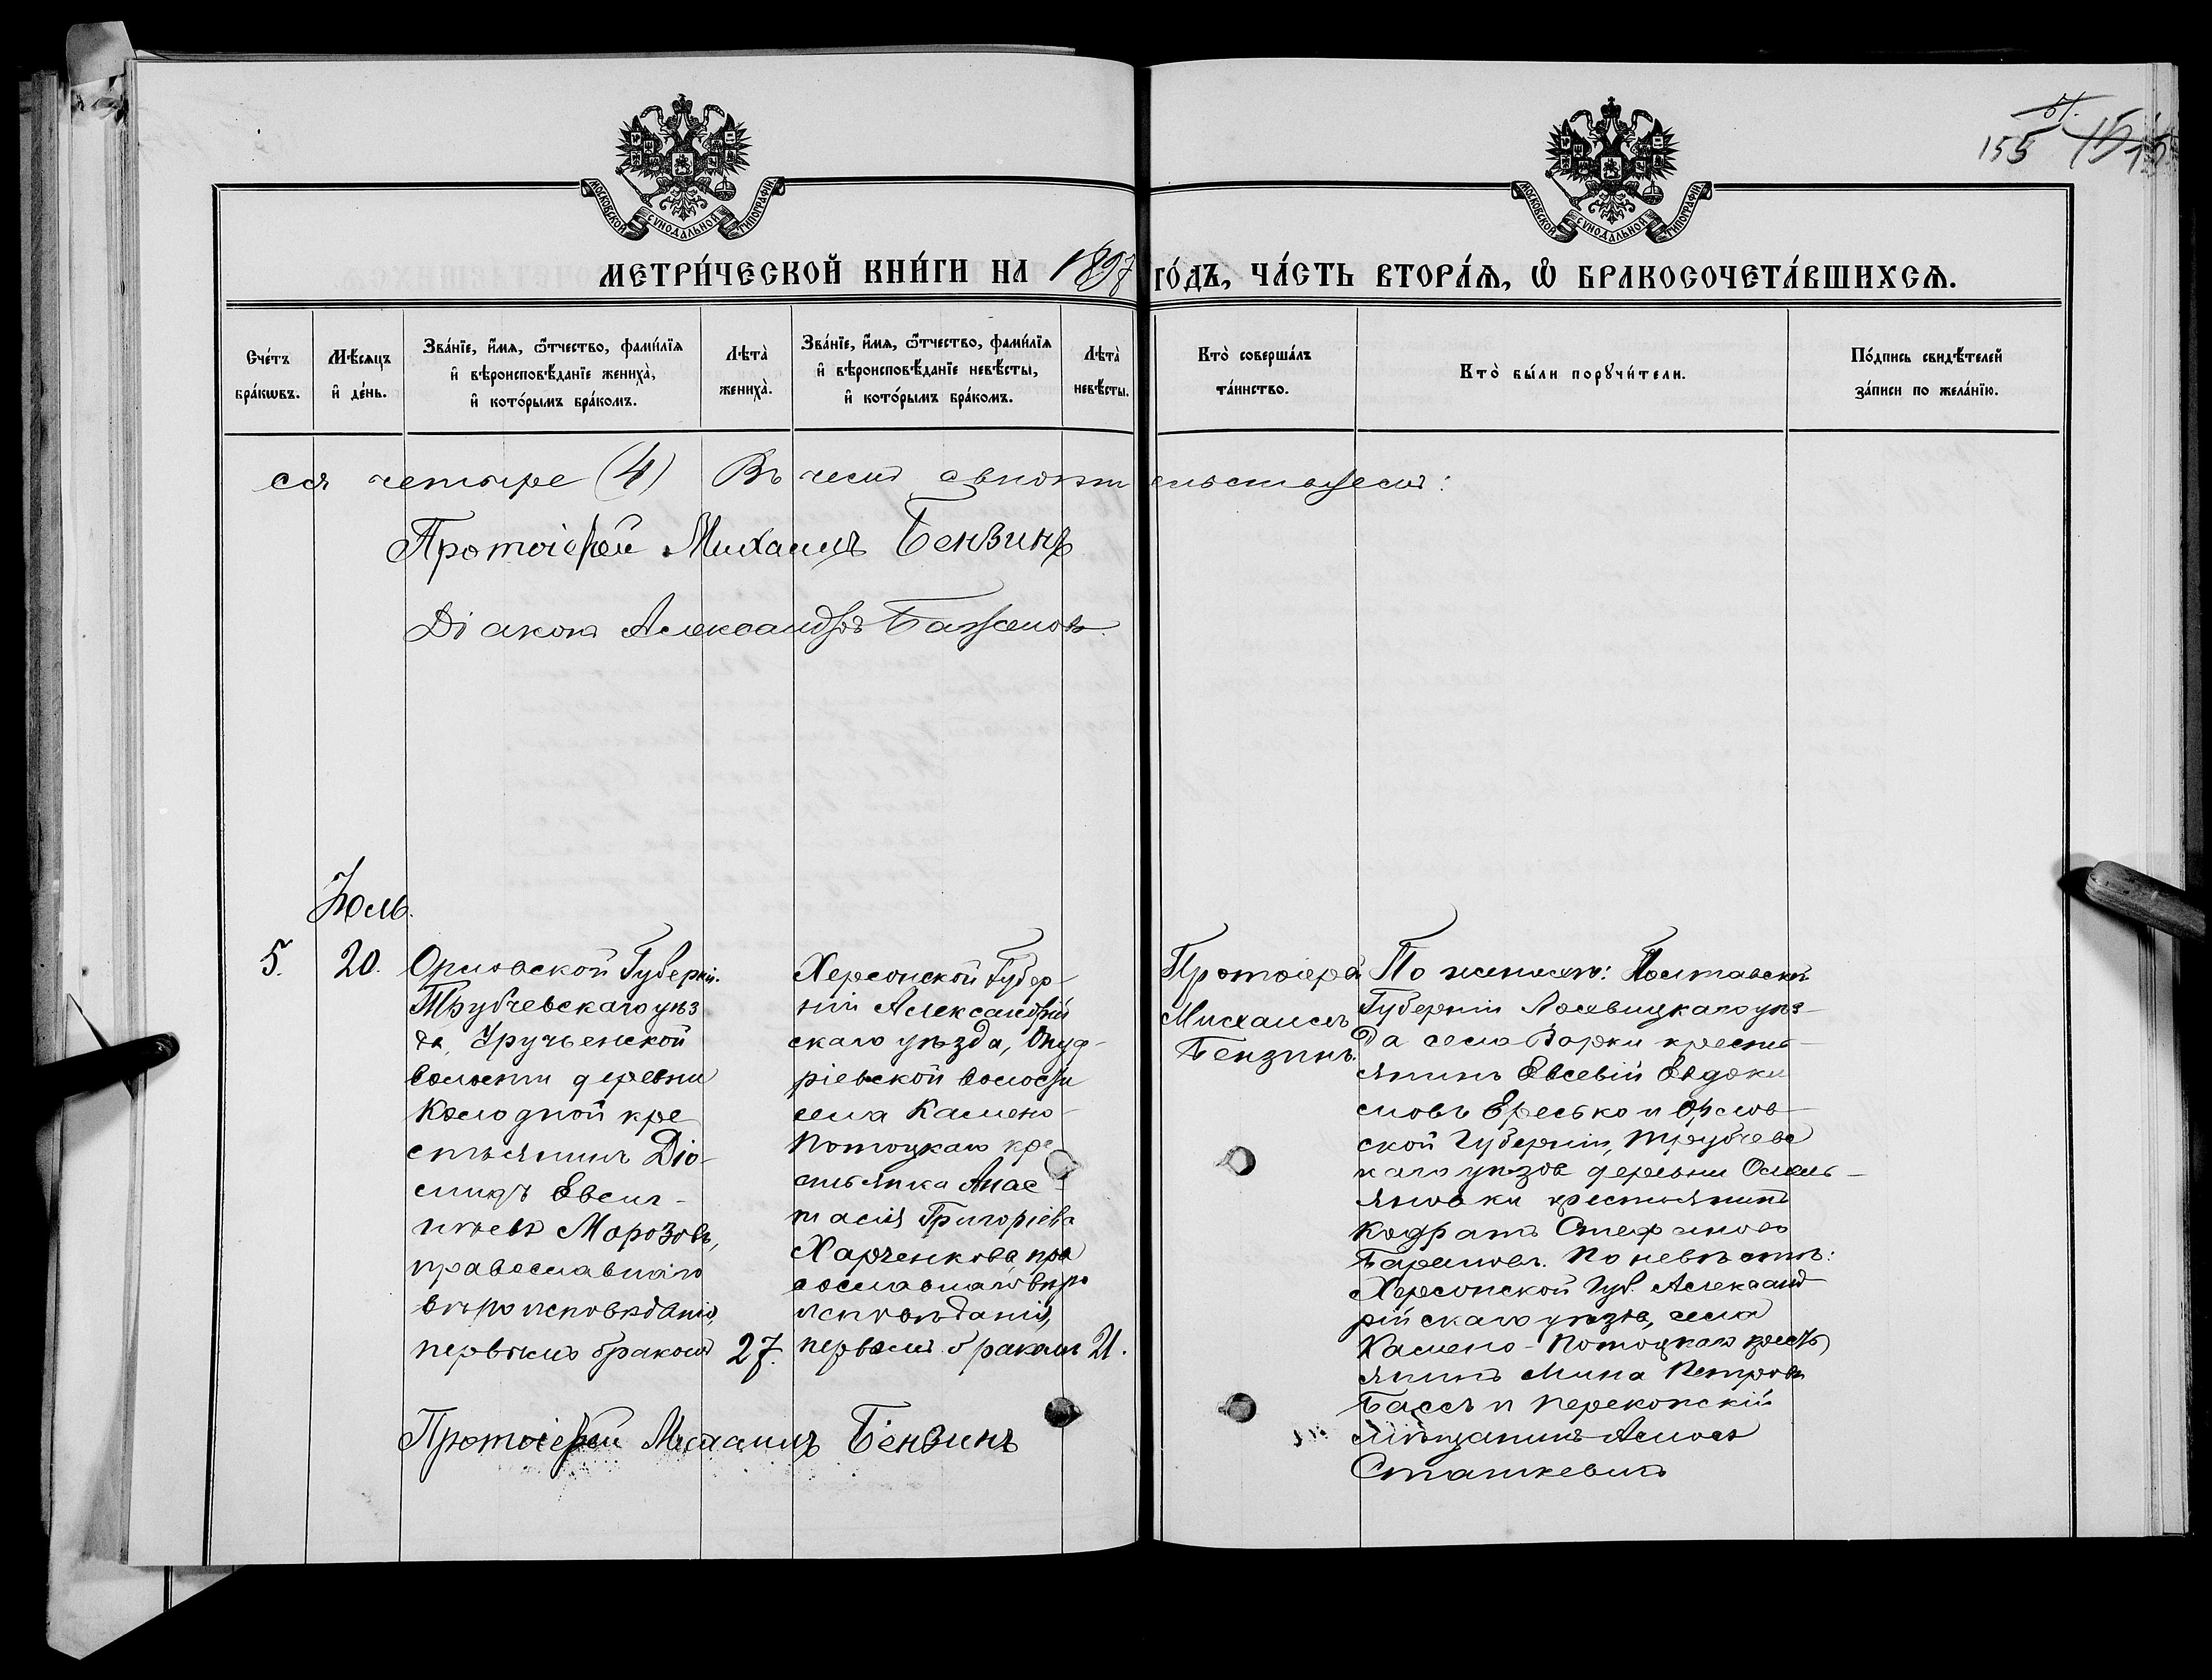 155
МОСКОВСКОЙ СѴНОДАЛЬНОЙ ТИПОГРАФІИ.
МОСКОВСКОЙ СѴНОДАЛЬНОЙ ТИПОГРАФІИ.
МЕТРИ́ЧЕСКОЙ КНИ́ГИ НА 1897 ГО́ДЪ, ЧА́СТЬ ВТОРА́Я, Ѽ БРАКОСОЧЕТА́ВШИХСЯ.
Сче́тъ бра́кѡвъ.
Мѣ́сяцъ и҆ де́нь.
Зва́нїе, и҆́мя, ѻ҆́тчество, фами́лїя и҆ вѣроисповѣ́данїе жениха̀, и҆ кото́рымъ бра́комъ.
Лѣта̀ жениха̀.
Зва́нїе, и҆́мя, ѻ҆́тчество, фами́лїя и҆ вѣроисповѣ́данїе невѣ́сты, и҆ кото́рымъ бра́комъ.
Лѣта̀ невѣ́сты.
Кто̀ соверша́лъ та́инство.
Кто̀ бы́ли порꙋчи́тели.
По́дпись свидѣ́телей за́писи по жела́нїю.
ся четыре (4) Въ чемъ свидѣтельствуемъ:
Протоіерей Михаилъ Бензинъ
Діаконъ Александръ Баженовъ
Іюль.
5.
20.
Орловской Губерніи.
Трубчевскаго уѣз
да, Уручьенской
волости деревни
Колодной кре
стьянинъ Діо-
мидъ Евсиг-
нѣевъ Морозовъ,
православнаго
вѣроисповѣданія,
первымъ бракомъ
27.
Херсонской Губер-
ніи Александрій
скаго уѣзда, Онуф-
ріевской волости
села Камено-
Потоцкаго кре
стьянка Анас-
тасія Григоріева
Харченкова, пра
вославнаго вѣро
исповѣданія,
первымъ бракомъ
21.
Протоіерей
Михаилъ
Бензинъ
По женихѣ: Полтавской
Губерніи Лохвицкаго уѣз-
да села Ворки кресть-
янинъ Евсевій Евдоки
мовъ Ересько и Орлов-
ской Губерніи, Трубчевс
каго уѣзда деревни Осмель-
яновки крестьянинъ
Кодратъ Стефановъ
Барановъ. По невѣстѣ:
Херсонской Губ. Александ-
рійскаго уѣзда, села
Камено-Потоцкаго кресть
янинъ Мина Петровъ
Бассъ и Перекопскій
мѣщанинъ Амосъ
Сташкевичъ
Протоіерей Михаилъ Бензинъ